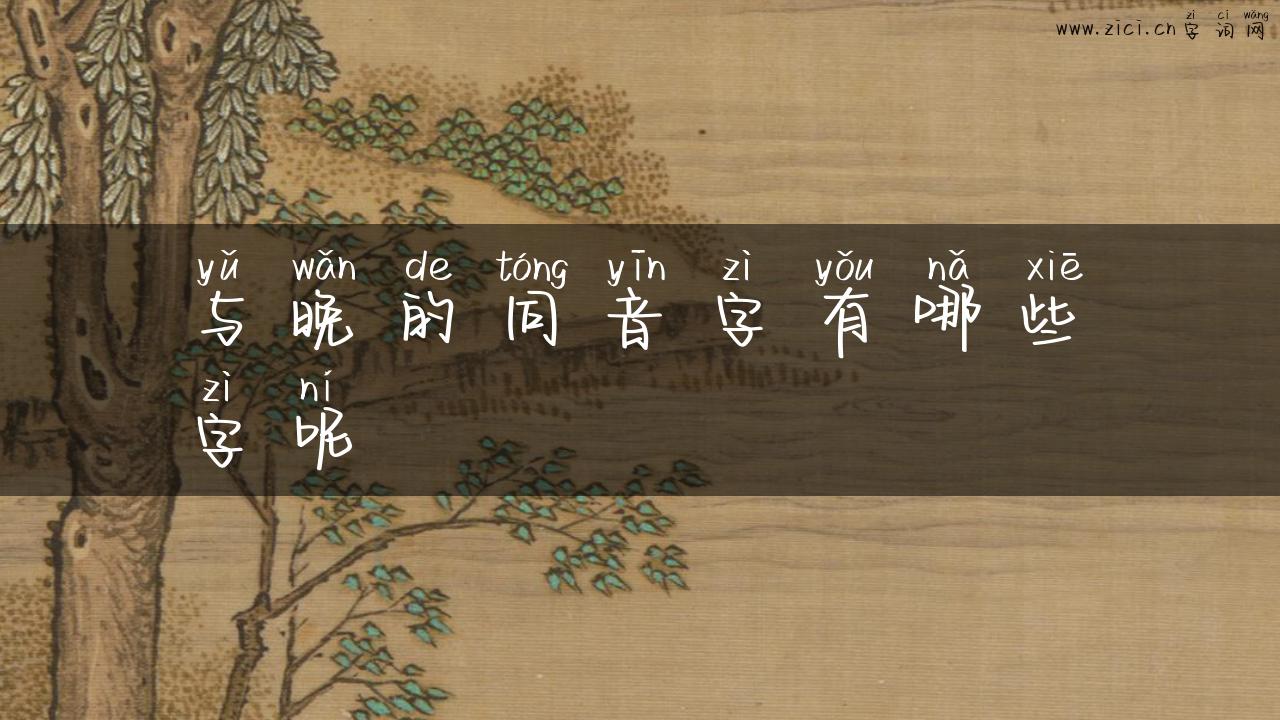 zì cí wǎng
www.zici.cn 字词网
yǔ wǎn de tóng yīn zì yǒu nǎ xiē
与晚的同音字有哪些
zì ní
字呢